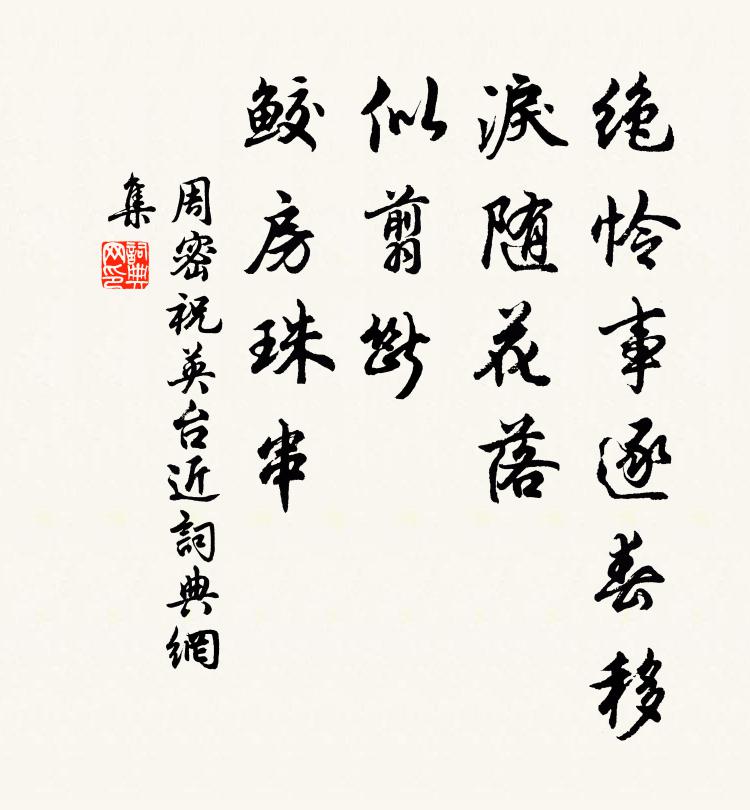 绝怜事逐春移
淚随花落
似翦斷
鲛房珠串
周密祝英台近詞典網
集
詞典
网印